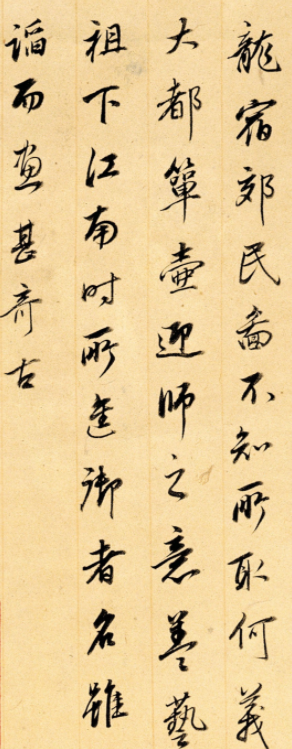 龍宿郊民圖不知所取何義
大都簞壺迎師之意蓋藝
祖下江南時所進御者名雖
諂而畫甚奇古